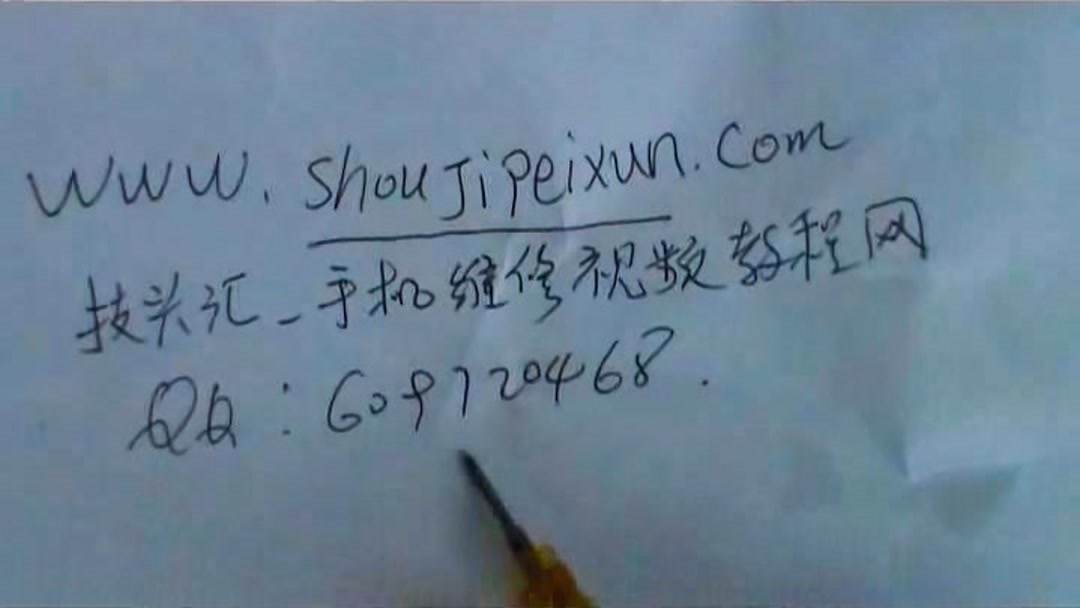 www.shoujipeixun.com
技头汇_手机维修视频教程网
QQ:609720468.